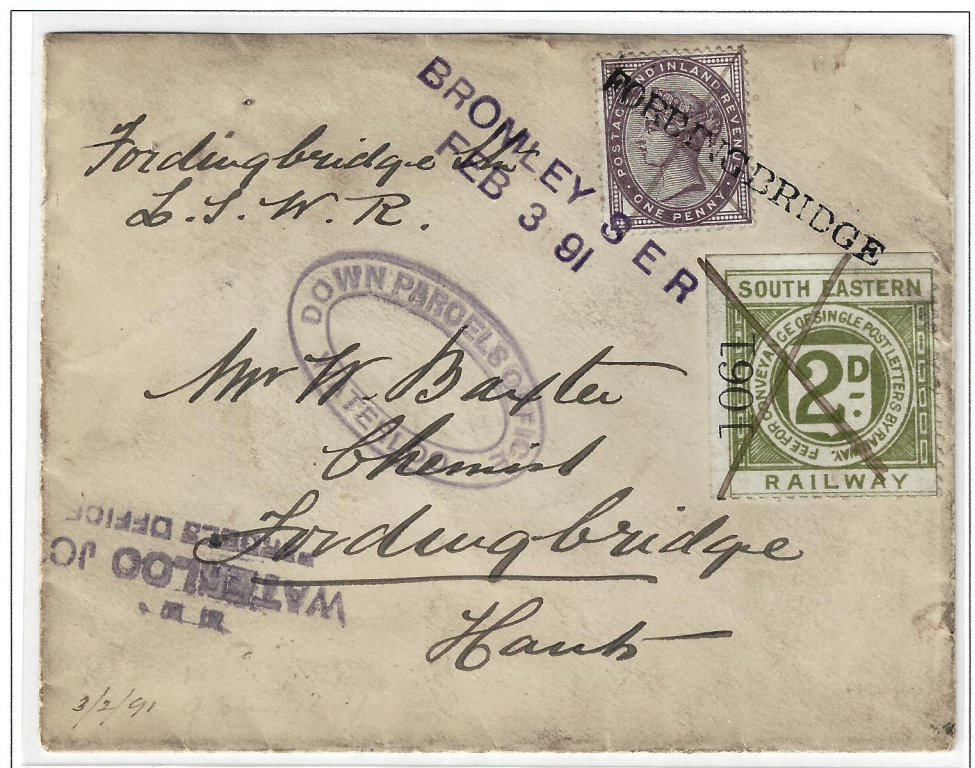 BROMLEY S E R
FEB 3 91
POSTAGE AND INLAND REVENUE
ONE PENNY
FORDINGBRIDGE
Fordingbridge Stn
L. S. W. R.
SOUTH EASTERN
FEE FOR CONVEYANCE OF SINGLE POST LETTERS BY RAILWAY.
2D.
1061
RAILWAY
DOWN PARCELS OFFICE
WATERLOO
Mr W. Baxter
Chemist
Fordingbridge
Hants
WATERLOO JC
PARCELS OFFICE
3/2/91